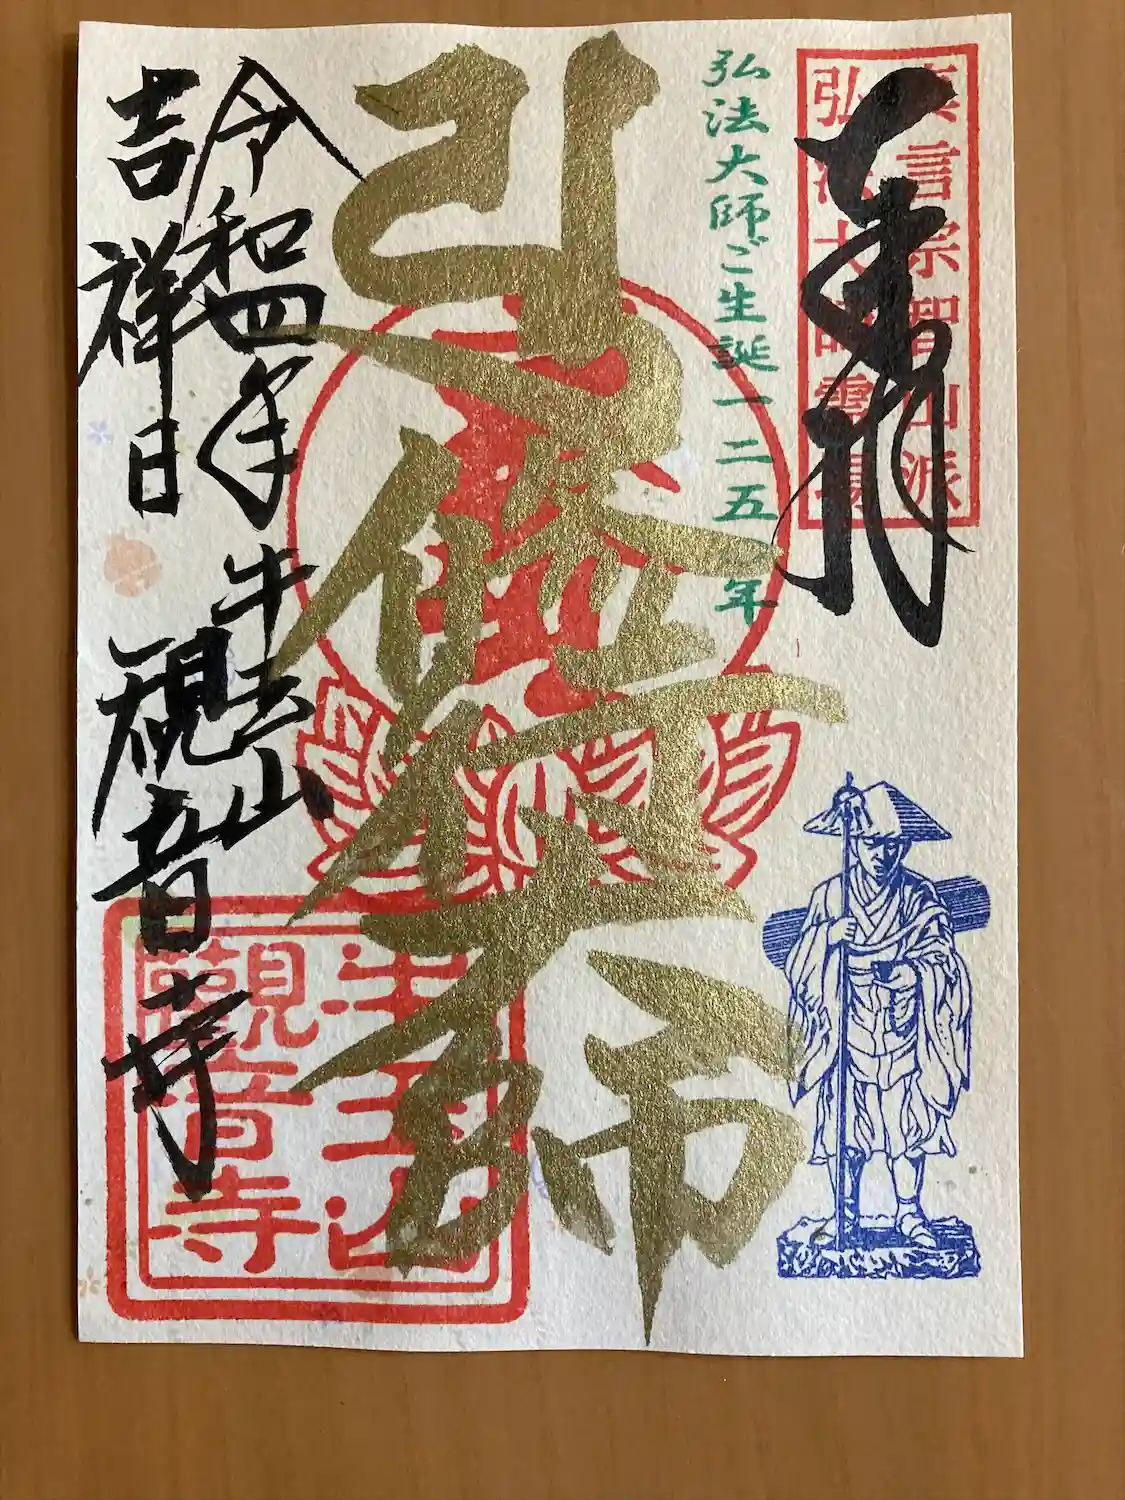 真言宗智山派
弘法大師霊場
奉拝
弘法大師ご生誕一二五〇年
修行大師
令和四年 牛王山
吉祥日 観音寺
牛王山
觀音寺